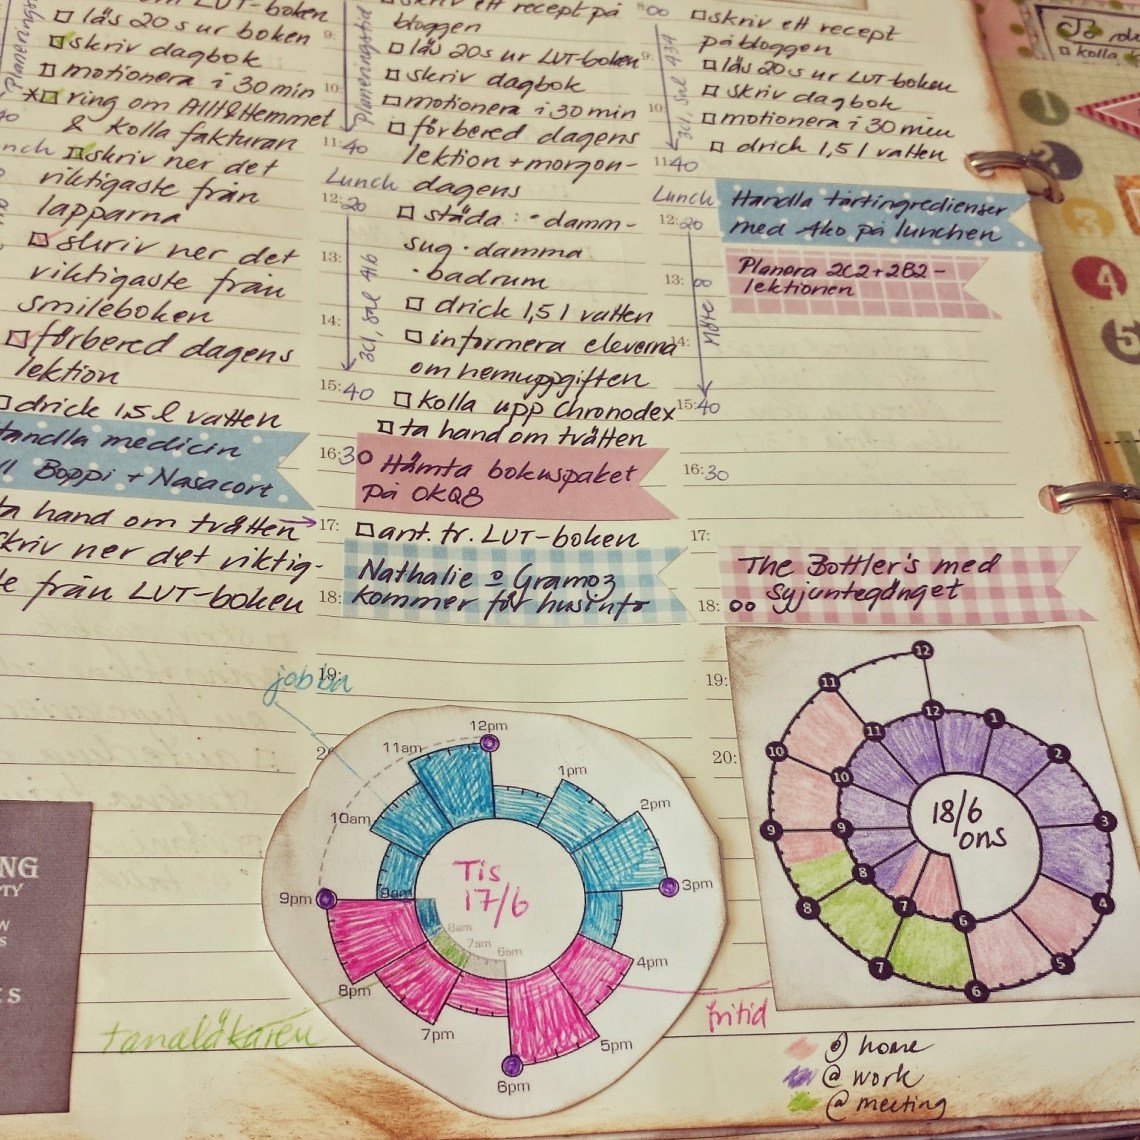 LUT-boken
läs 20s ur boken
skriv dagbok
motionera i 30 min
ring om Allt&Hemmet
& kolla fakturan
skriv ner det
riktigaste från
lapparna
skriv ner det
viktigaste från
smileboken
förbered dagens
lektion
drick 1,5 l vatten
Handla medicin
Boppi + Nasacort
ta hand om tvätten
skriv ner det viktig-
från LUT-boken
Planeringstid
skriv ett recept på
bloggen
läs 20s ur LUT-boken
skriv dagbok
motionera i 30 min
förbered dagens
lektion + morgon-
dagens
städa: · damm-
sug · damma
· badrum
drick 1,5 l vatten
informera eleverna
om hemuppgiften
kolla upp Chronodex
ta hand om tvätten
9:
10:
11:40
Lunch
12:20
13:
14:
15:40
16:30
17:
18:
19:
20
3C1, sal 416
Hämta bokuspaket
på OKQ8
ant. tr. LUT-boken
Nathalie o Gramoz
kommer för husinfo
8:00
9:
10:
11:40
Lunch
12:20
13:
14:
15:40
16:30
17:
18:00
19:
20:
3C1, sal 434
Möte
skriv ett recept
på bloggen
läs 20s ur LUT-boken
skriv dagbok
motionera i 30 min
drick 1,5 l vatten
Handla tårtingredienser
med Ako på lunchen
Planera 2C2+2B2-
lektionen
The Bottler's med
syjuntegänget
jobba
12pm
11am
1pm
10am
2pm
9am
3pm
9pm
8am
7am
6am
8pm
4pm
7pm
5pm
6pm
Tis
17/6
tandläkaren
fritid
12
11
12
1
11
2
10
10
3
9
9
8
4
8
7
6
5
7
6
18/6
ons
@ home
@ work
@ meeting
kolla
1
3
3
4
5